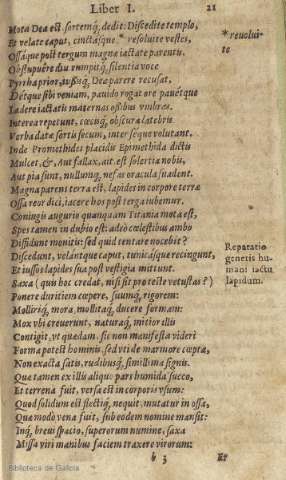 Liber I. 21
Mota Dea est, sortemq́; dedit: Discedite templo,
Et velate caput, cinctasq́ue * resoluite vestes,
* reuoluite
Ossaq́ue post tergum magnæ iactate parentis.
Obstupuêre diu rumpitq́; silentia voce
Pyrrha prior, iussisq́; Deæ parere recusat,
Detque sibi veniam, pauido rogat ore pauetque
Lædere iactatis maternas ossibus vmbras.
Interea repetunt, cæcisq́; obscura latebris
Verba datæ sortis secum, inter séque volutant.
Inde Promethides placidis Epimethida dictis
Mulcet, &, Aut fallax, ait, est solertia nobis,
Aut pia sunt, nullumq́; nefas oracula suadent.
Magna parens terra est, lapides in corpore terræ
Ossa reor dici, iacere hos post terga iubemur.
Coniugis augurio quanquam Titania mota est,
Spes tamen in dubio est: adeò cœlestibus ambo
Diffidunt monitis: sed quid tentare nocebit?
Discedunt, velántque caput, tunicásque recingunt,
Reparatio generis humani iactu lapidum.
Et iussos lapides sua post vestigia mittunt.
Saxa (quis hoc credat, nisi sit pro teste vetustas?)
Ponere duritiem cœpere, suumq́; rigorem:
Molliriq́; mora, mollitaq́; ducere formam:
Mox vbi creuerunt, naturaq́; mitior illis
Contigit, vt quædam, sic non manifesta videri
Forma potest hominis, sed vti de marmore cœpta,
Non exacta satis, rudibusq́; simillima signis.
Quæ tamen ex illis aliquo pars humida succo,
Et terrena fuit, versa est in corporis vsum:
Quod solidum est flectiq́; nequit, mutatur in ossa,
Quæ modo vena fuit, sub eodem nomine mansit:
Inq́; breui spacio, superorum numine, saxa
Missa viri manibus faciem traxere virorum:
b 3 Et
Biblioteca de Galicia